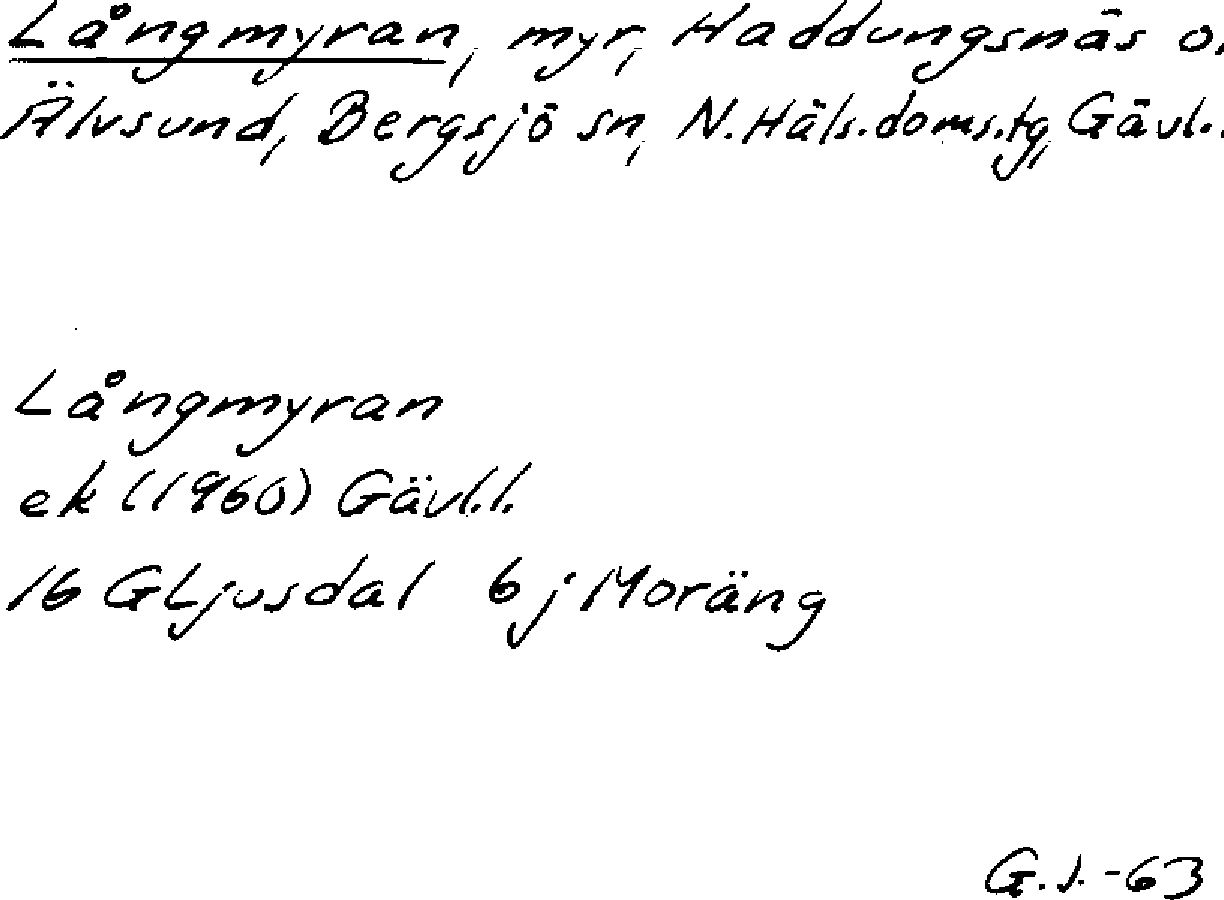 Långmyran, myr, Haddungsnäs o.
Älvsund, Bergsjö sn, N.Häls.doms.tg, Gävl..
Långmyran
ek (1960) Gävl.l.
16 G Ljusdal 6 j Moräng
G.J.-63